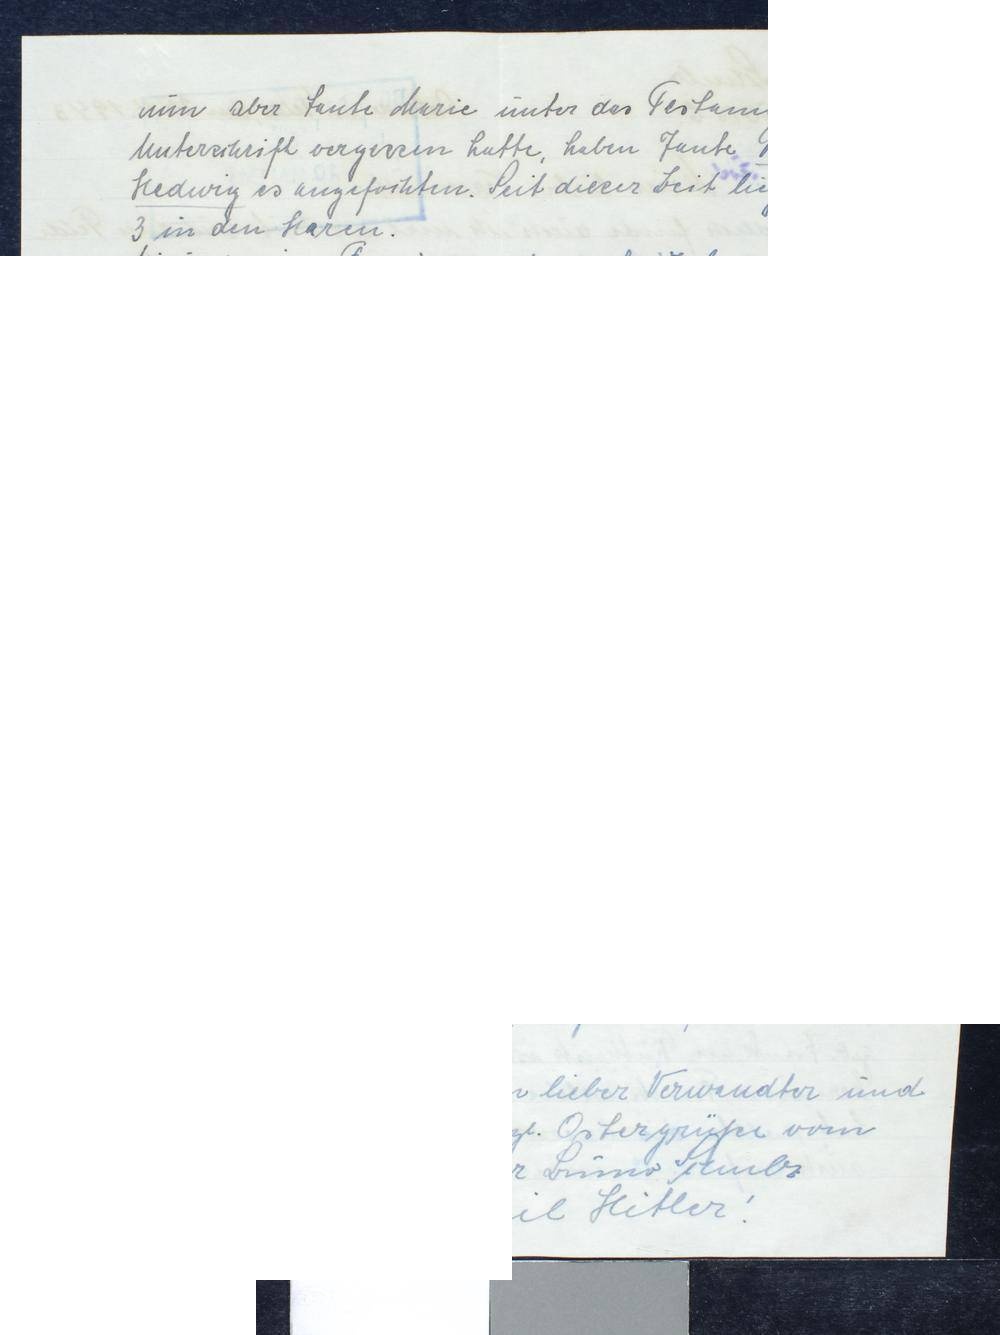 nun aber Tante Marie unter das Testam
Unterschrift vergessen hatte, haben Tante
Hedwig es angefochten. Seit dieser Zeit lie
3 in den Haren.
lieber Verwandter und
Ostergrüße vom
r Bruno
il Hitler!